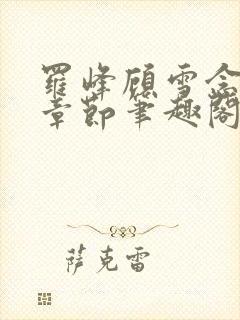 羅峰顧雪念
章節筆趣閣
薩克雷